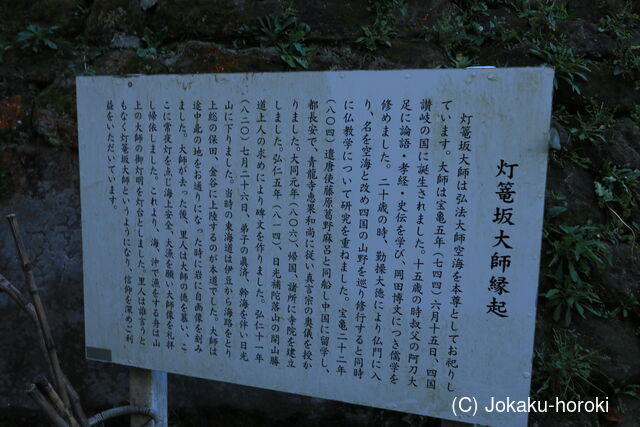 灯篭坂大師縁起
灯篭坂大師は弘法大師空海を本尊としてお祀りし
ています。大師は宝亀五年(七四四)六月十五日、四国
讃岐の国に誕生されました。十五歳の時叔父の阿刀大
足に論語・孝経・史伝を学び、岡田博文につき儒学を
修めました。二十歳の時、勤操大徳により仏門に入
り、名を空海と改め四国の山野を巡り修行すると同時
に仏教学について研究を重ねました。宝亀二十二年
(八〇四)遣唐使藤原葛野麻呂と同船し中国に留学し、
都長安で、青龍寺恵果和尚に従い真言宗の奥儀を授か
りました。大同元年(八〇六)、帰国、諸所に寺院を建立
しました。弘仁五年(八一四)、日光補陀落山の開山勝
道上人の求めにより碑文を作りました。弘仁十一年
(八二〇)七月二十六日、弟子の真済、幹海を伴い日光
山に下りました。当時の東海道は伊豆から海路をとり
上総の保田、金谷に上陸するのが本道でした。大師は
途中此の地をお通りになった時に岩に自画像を刻み
ました。大師が去った後、里人は大師の徳を慕い、こ
こに常夜灯を点じ海上安全、大漁を願い大師像を礼拝
し帰依しました。これより、海、沖で漁をする舟は山
上の大師の御灯明を灯台としました。里人は誰言うと
もなく灯篭坂大師というようになり、信仰を深めご利
益をいただいています。
(C) Jokaku-horoki